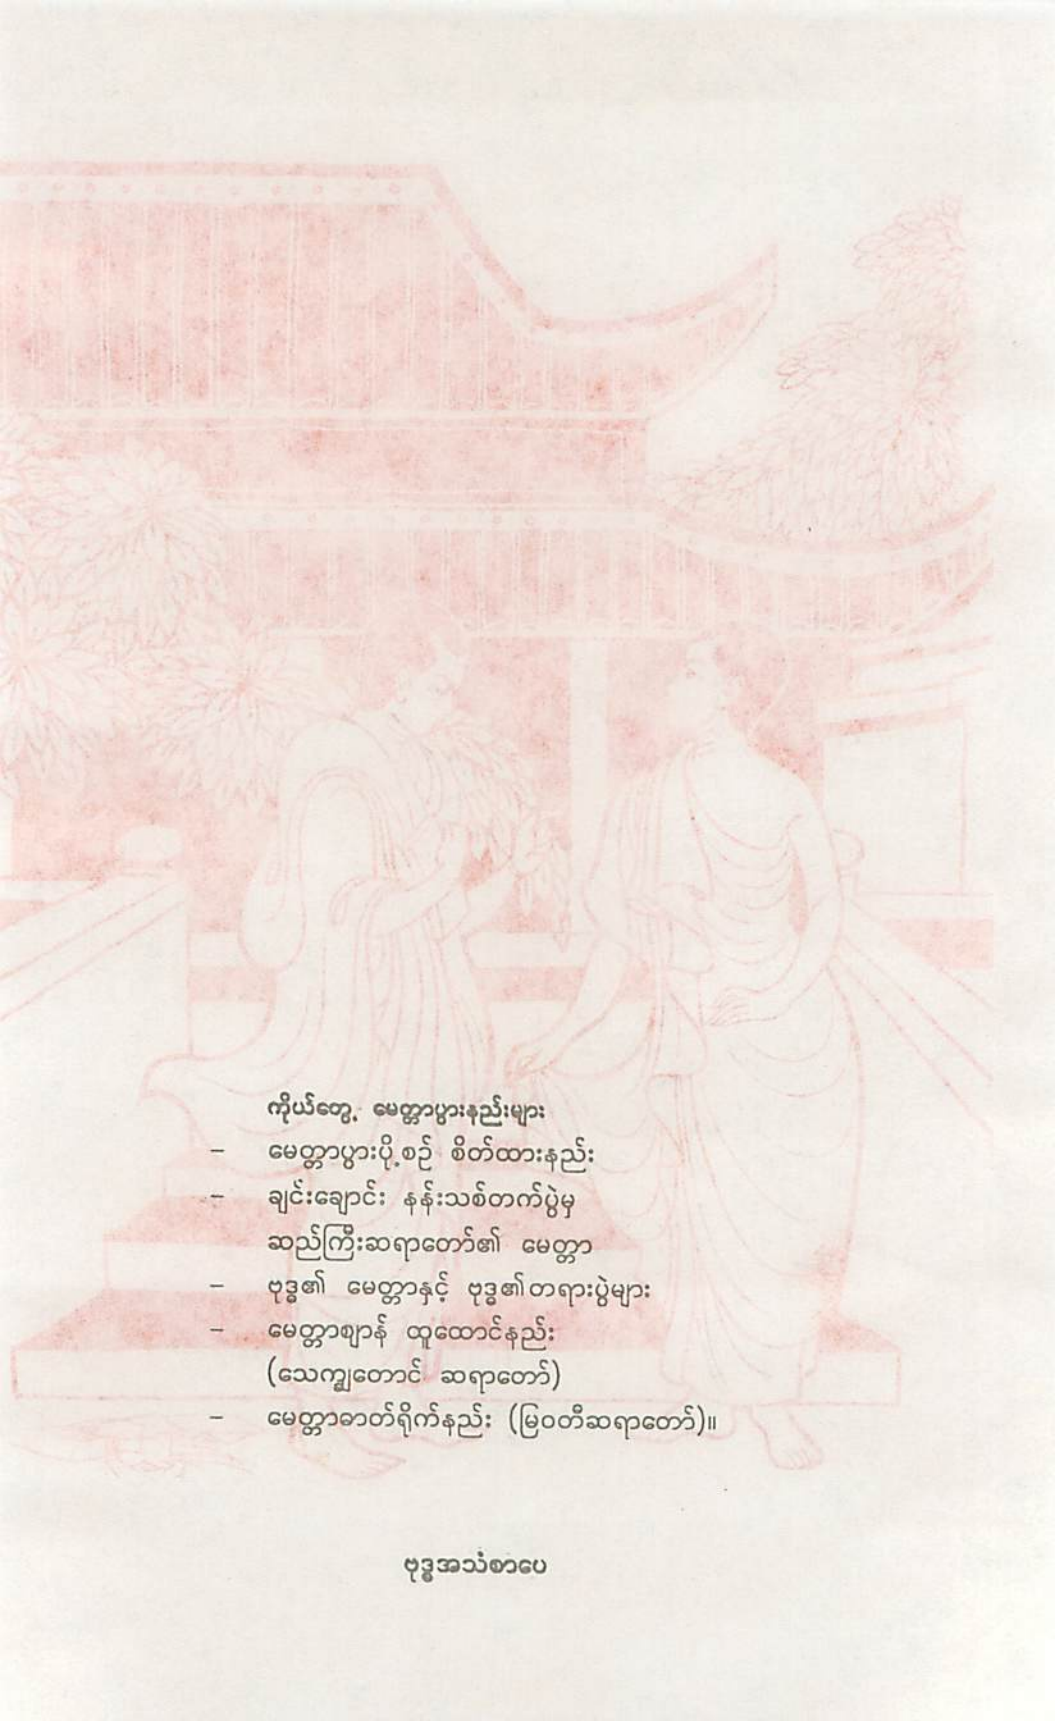 ကိုယ်တွေ့ မေတ္တာပွားနည်းများ
– မေတ္တာပွားပို့စဉ် စိတ်ထားနည်း
– ချင်းချောင်း နန်းသစ်တက်ပွဲမှ
ဆည်ကြီးဆရာတော်၏ မေတ္တာ
– ဗုဒ္ဓ၏ မေတ္တာနှင့် ဗုဒ္ဓ၏တရားပွဲများ
– မေတ္တာဈာန် ထူထောင်နည်း
(သေက္ချတောင် ဆရာတော်)
– မေတ္တာဓာတ်ရိုက်နည်း (မြဝတီဆရာတော်)။
ဗုဒ္ဓအသံစာပေ